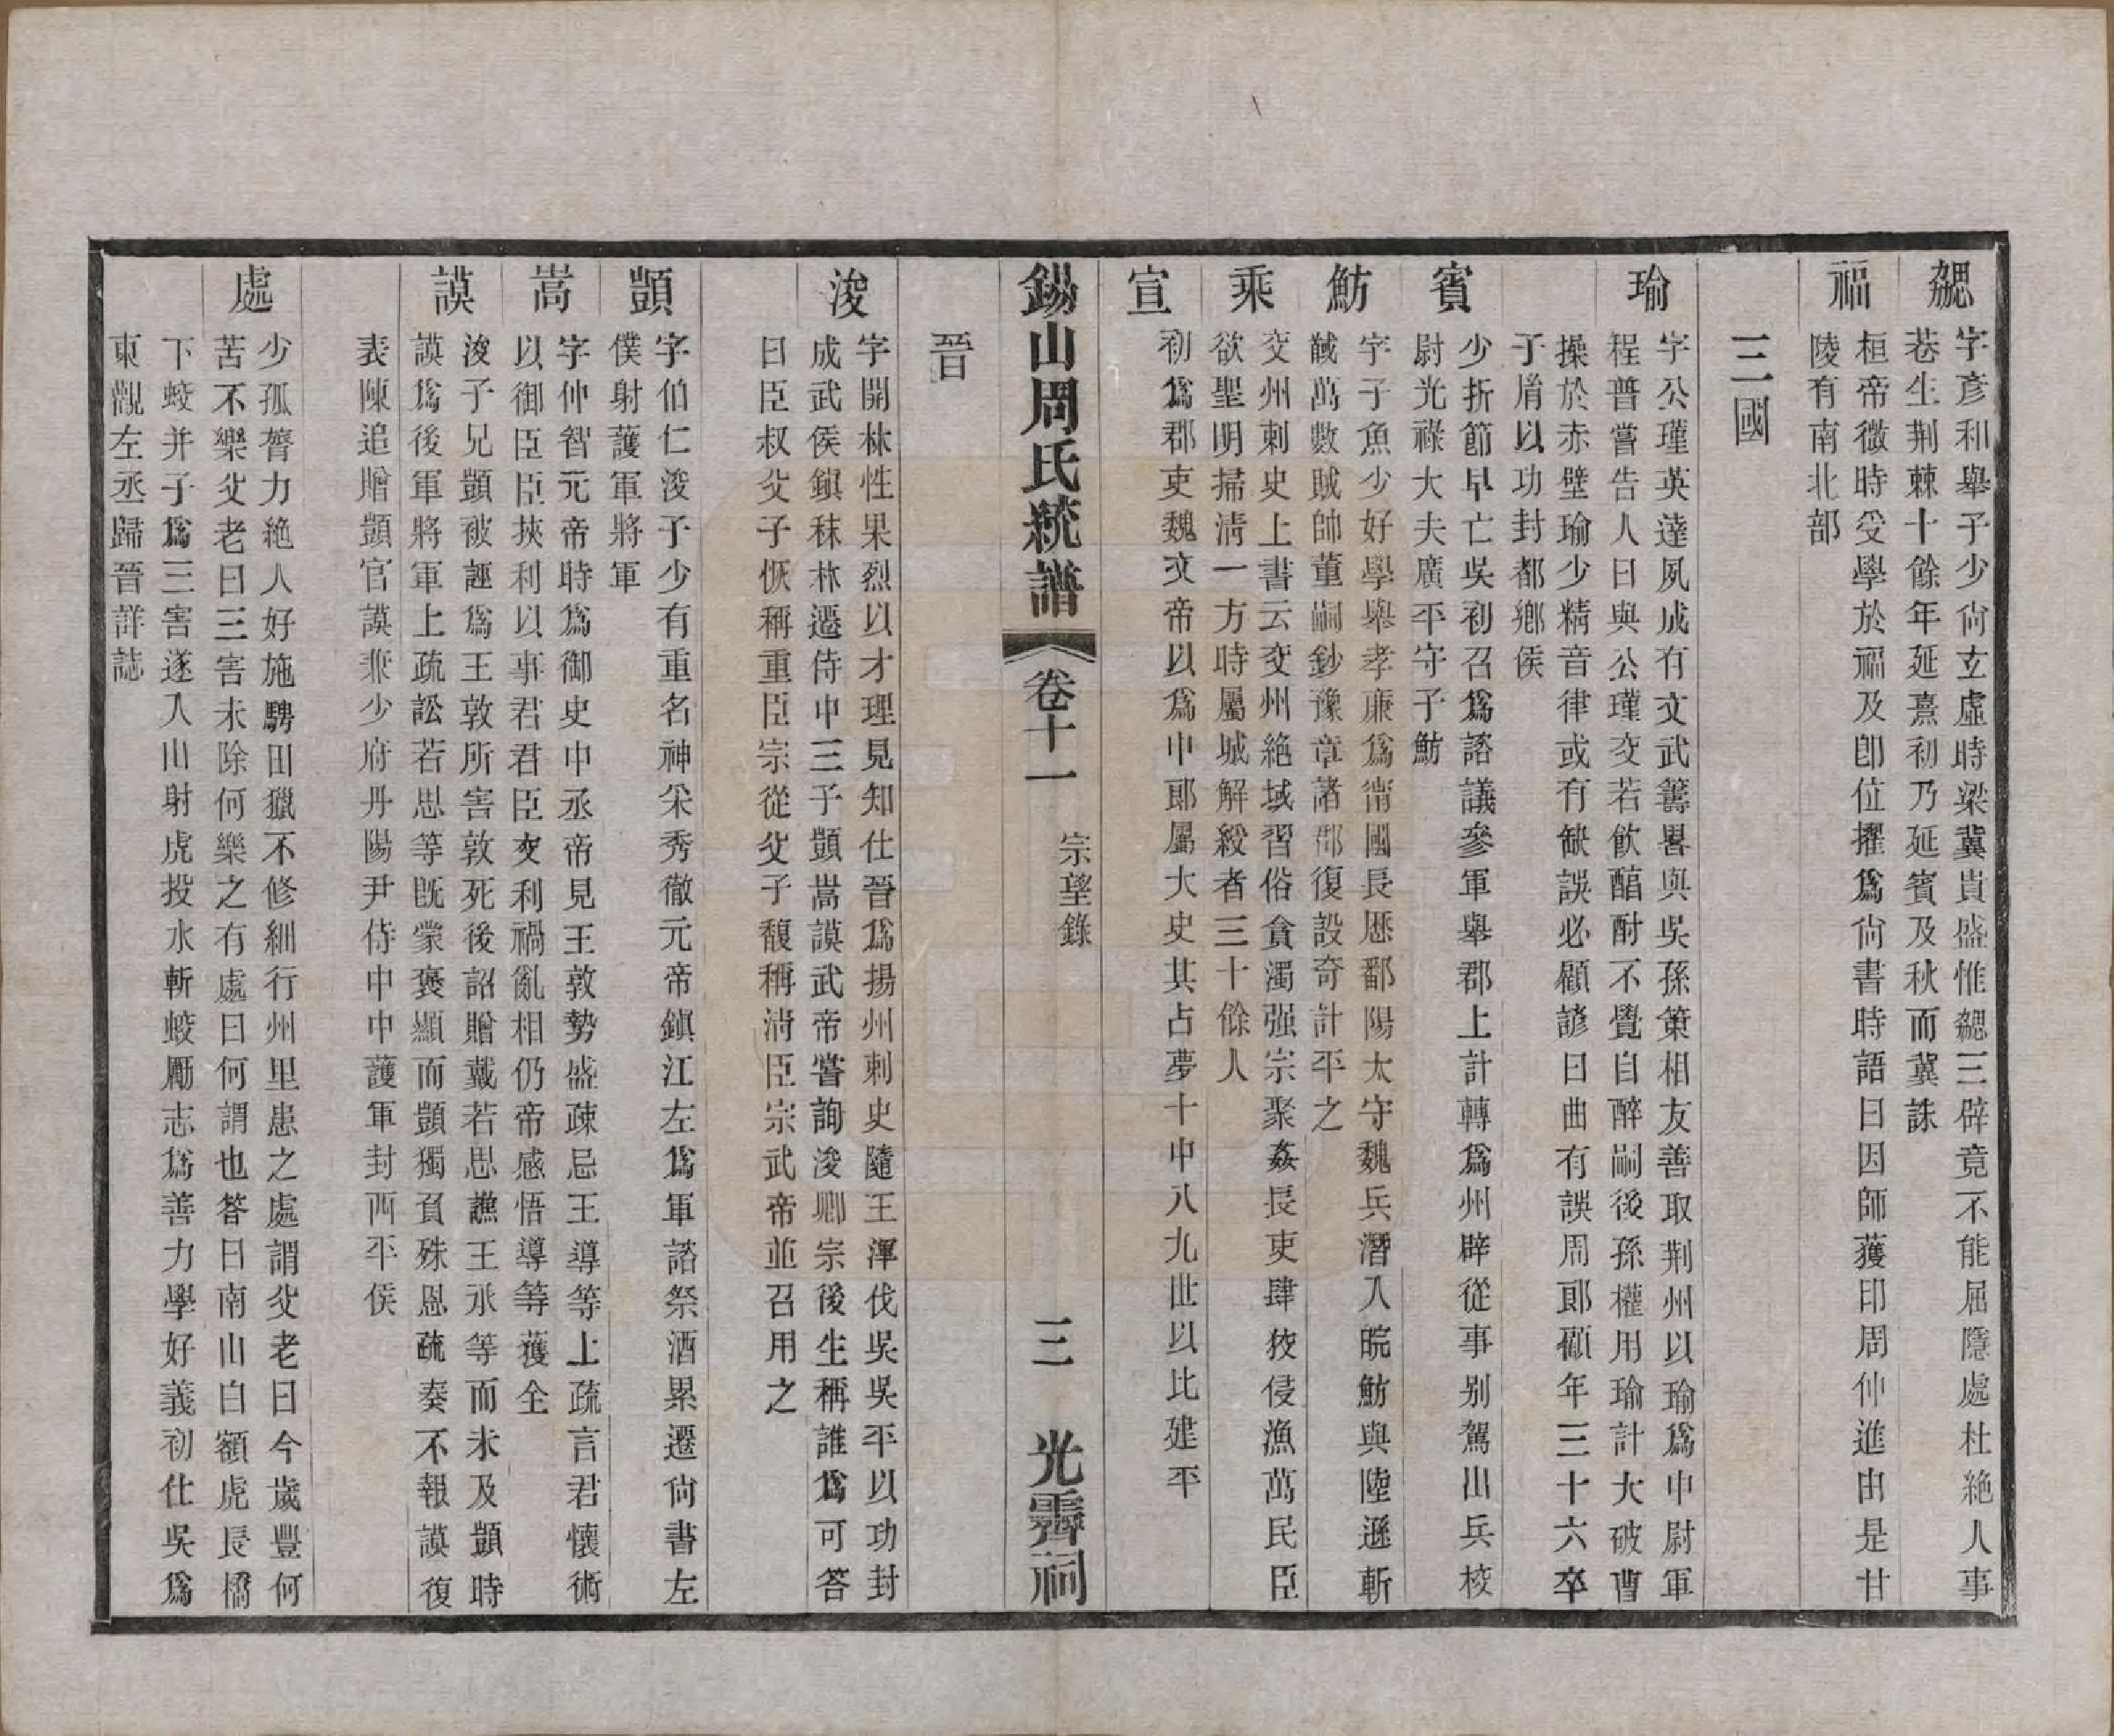 勰
字彥和舉子少尙玄虛時梁冀貴盛惟勰三辟竟不能屈隱處杜絕人事
巷生荆棘十餘年延熹初乃延賓及秋而冀誅
福
桓帝微時受學於福及卽位擢爲尙書時語曰因師獲印周仲進由是甘
陵有南北部
三國
瑜
字公瑾英達夙成有文武籌畧與吳孫策相友善取荆州以瑜爲中尉軍
程普嘗告人曰與公瑾交若飮醕酎不覺自醉嗣後孫權用瑜計大破曹
操於赤壁瑜少精音律或有缺誤必顧諺曰曲有誤周郞顧年三十六卒
子胤以功封都鄉侯
賓
少折節早亡吳初召爲諮議參軍舉郡上計轉爲州辟從事别駕出兵校
尉光祿大夫廣平守子魴
魴
字子魚少好學舉孝廉爲甯國長歷鄱陽太守魏兵潛入皖魴與陸遜斬
馘萬數賊帥董嗣鈔豫章諸郡復設奇計平之
乘
交州刺史上書云交州絕域習俗貪濁强宗聚姦長吏肆狡侵漁萬民臣
欲聖明掃淸一方時屬城解綬者三十餘人
宣
初爲郡吏魏文帝以爲中郞屬大史其占夢十中八九世以比建平
錫山周氏統譜
卷十一
宗望錄
三
光霽祠
晉
浚
字開林性果烈以才理見知仕晉爲揚州刺史隨王渾伐吳吳平以功封
成武侯鎭秣林遷侍中三子顗嵩謨武帝嘗詢浚卿宗後生稱誰爲可答
曰臣叔父子恢稱重臣宗從父子馥稱淸臣宗武帝並召用之
顗
字伯仁浚子少有重名神采秀徹元帝鎭江左爲軍諮祭酒累遷尙書左
僕射護軍將軍
嵩
字仲智元帝時爲御史中丞帝見王敦勢盛疎忌王導等上疏言君懷術
以御臣臣挾利以事君君臣交利禍亂相仍帝感悟導等獲全
謨
浚子兄顗被誣爲王敦所害敦死後詔贈戴若思譙王氶等而未及顗時
謨爲後軍將軍上疏訟若思等旣蒙褒顯而顗獨負殊恩疏奏不報謨復
表陳追贈顗官謨兼少府丹陽尹侍中中護軍封西平侯
處
少孤膂力絕人好施騁田獵不修細行州里患之處謂父老曰今歲豐何
苦不樂父老曰三害未除何樂之有處曰何謂也答曰南山白額虎長橋
下蛟并子爲三害遂入山射虎投水斬蛟勵志爲善力學好義初仕吳爲
東觀左丞歸晉詳誌